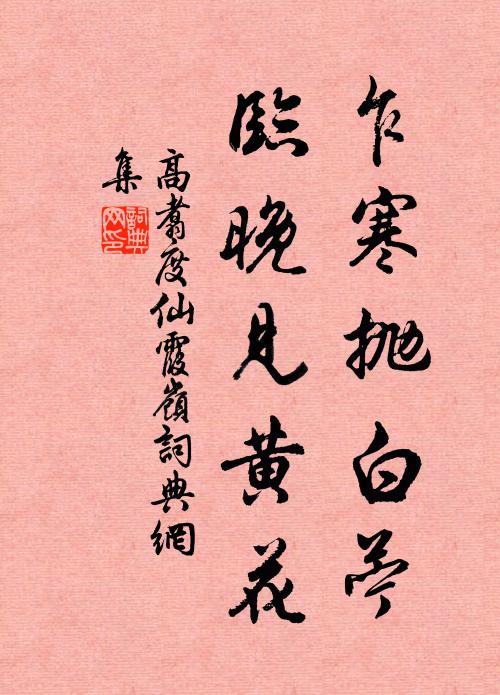 乍寒拋白苧
臨晚見黃花
高翥度仙霞嶺詞典網
集
詞典
網印